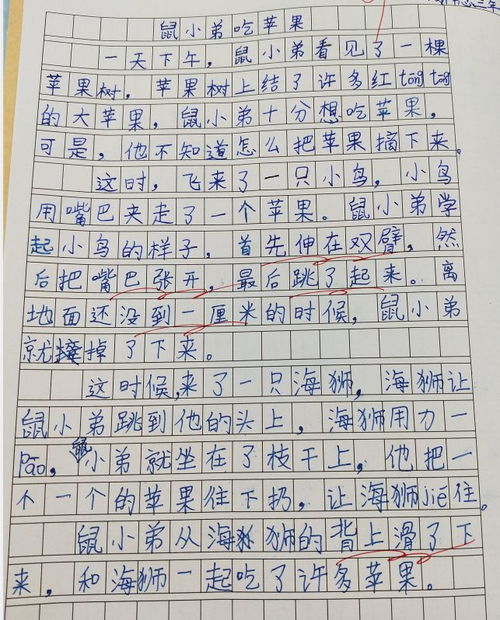 鼠小弟吃苹果
一天下午，鼠小弟看见了一棵
苹果树，苹果树上结了许多红tōng tōng
的大苹果，鼠小弟十分想吃苹果，
可是，他不知道怎么把苹果摘下来。
这时，飞来了一只小鸟，小鸟
用嘴巴夹走了一个苹果。鼠小弟学
起小鸟的样子，首先伸在双臂，然
后把嘴巴张开，最后跳了起来。离
地面还没到一厘米的时候，鼠小弟
就掉了下来。
这时候，来了一只海狮，海狮让
鼠小弟跳到他的头上，海狮用力一
Pāo，鼠小弟就坐在了枝干上，他把一
个一个的苹果往下扔，让海狮jiē住。
鼠小弟从海狮的背上滑了下
来，和海狮一起吃了许多苹果。